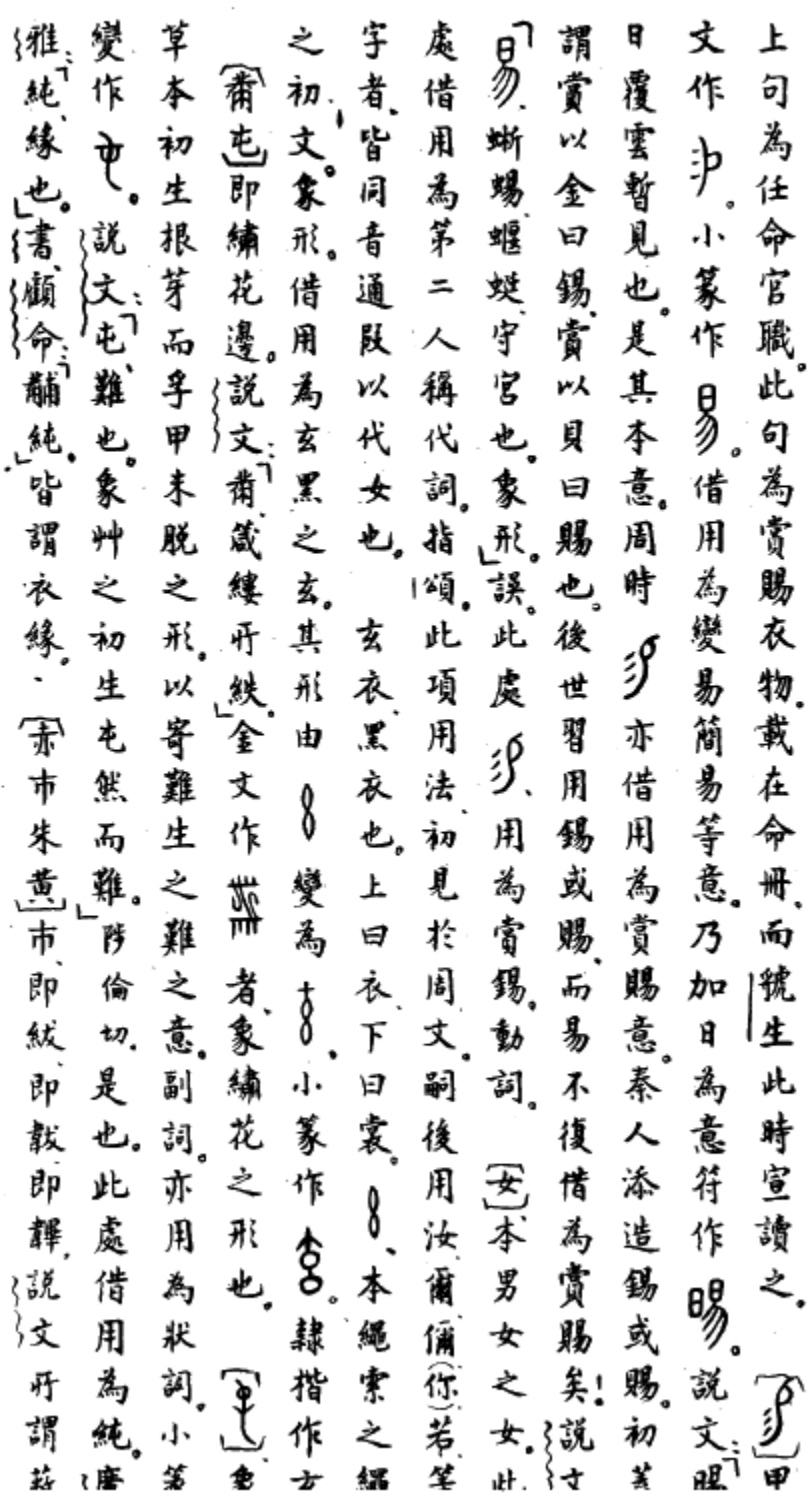 上句為任命官職。此句為賞賜衣物。載在命冊、而虢生此時宣讀之。〔〕甲
文作。小篆作。借用為變易簡易等意。乃加日為意符作。說文：「暘、
日覆雲暫見也。是其本意。周時亦借用為賞賜意。秦人添造錫或賜。初蓋
謂賞以金曰錫、賞以貝曰賜也。後世習用錫或賜、而易不復借為賞賜矣！說文
「易、蜥蜴、蝘蜓、守宮也。象形。」誤。此處、用為賞錫。動詞。〔女〕、本男女之女。此
處借用為第二人稱代詞。指頌。此項用法、初見於周文。嗣後用汝爾儞（你）若等
字者、皆同音通叚以代女也。玄衣、黑衣也。上曰衣、下曰裳。、本繩索之繩
之初文。象形。借用為玄黑之玄。其形由變為。小篆作。隸楷作玄
〔黹屯〕即繡花邊。說文：「黹、箴縷所紩。」金文作者、象繡花之形也。〔〕象
草本初生根芽而孚甲未脫之形。以寄難生之難之意。副詞。亦用為狀詞。小篆
變作。說文：「屯、難也。象艸之初生屯然而難。」陟倫切。是也。此處借用為純。廣
雅：「純、緣也。」書、顧命：「黼純。」皆謂衣緣。〔赤市朱黃〕市、即紱、即韍、即韠、說文所謂